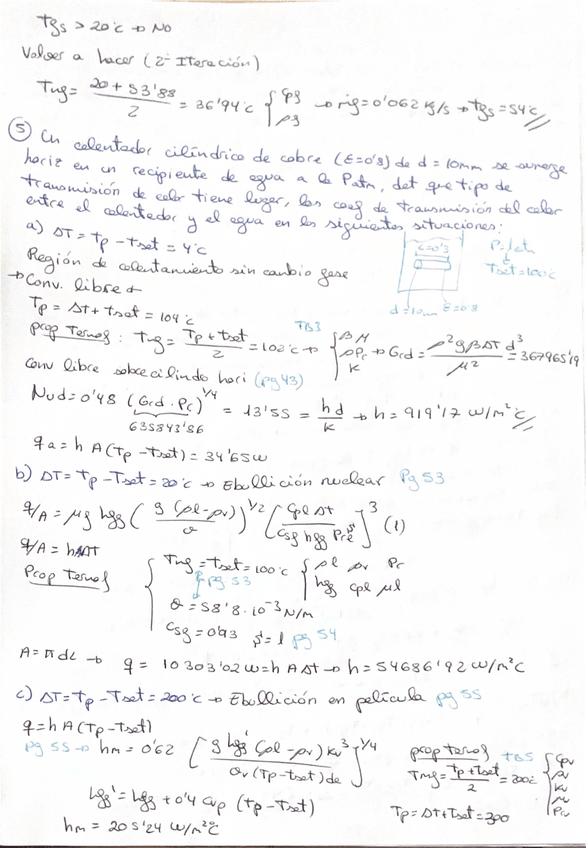 Tgs > 20°c → No
Volver a hacer (2ª Iteración)
Tmg = (20 + 53'88)/2 = 36'94°c { Cpg ρg → ṁg = 0'062 kg/s → tgs = 54°c
⑤ Un calentador cilíndrico de cobre (ε=0'8) de d = 10mm se sumerge
horiz en un recipiente de agua a la Patm, det que tipo de
transmisión de calor tiene lugar, los coef de transmisión del calor
entre el calentador y el agua en las siguientes situaciones:
a) ΔT = Tp - Tsat = 4°c
Región de calentamiento sin cambio fase
P=1atm
Tsat=100°c
d=10mm ε=0'8
→ Conv. libre
Tp = ΔT + Tsat = 104°c
prop Termof: Tmg = (Tp + Tsat)/2 = 102°c → TB3 { β μ ρ Pr K → Grd = ρ² g β ΔT d³/μ² = 367965'19
Conv libre sobre cilindro hori (pg 43)
Nud = 0'48 (Grd · Pr)^1/4 = 13'55 = hd/K → h = 919'17 W/m²°c
635843'86
qa = h A (Tp - Tsat) = 34'65 w
b) ΔT = Tp - Tsat = 20°c → Ebullición nuclear Pg 53
q/A = μl hfg (g (ρl - ρv)/σ)^1/2 [Cpl Δt/(Csf hfg Prl^s)]^3 (1)
q/A = hΔT
Prop Termof { Tmg = Tsat = 100°c { ρl ρv Pr hfg cpl μl
pg 53
σ = 58'8·10⁻³ N/m
Csf = 0'013 s = 1 pg 54
A = π d L → q = 10303'02 w = h A ΔT → h = 54686'92 w/m²c
c) ΔT = Tp - Tsat = 200°c → Ebullición en película pg 55
q = h A (Tp - Tsat)
pg 55 → hm = 0'62 [g hfg' (ρl - ρv) Kv³/(σv (Tp - Tsat) de)]^1/4
prop termof TB5
Tmg = (Tp + Tsat)/2 = 200°c { Cpv ρv Kv μv Prv
hfg' = hfg + 0'4 Cvp (Tp - Tsat)
Tp = ΔT + Tsat = 300
hm = 205'24 W/m²°c